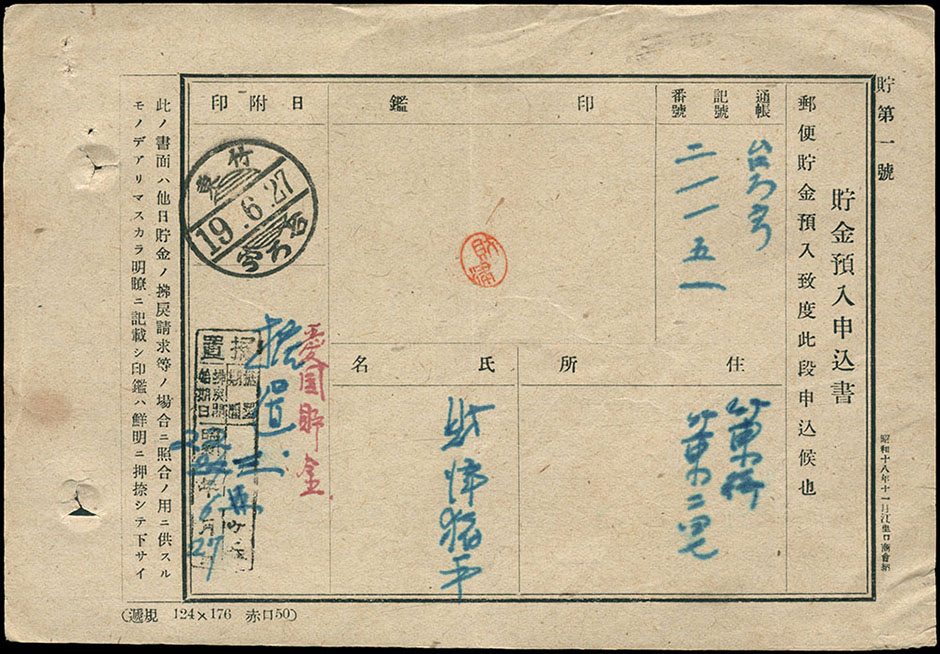 貯第一號
貯金預入申込書
郵便貯金預入致度此段申込候也
昭和十八年十一月江里口商會納
通帳
記號
番號
台ろ
二一一五一
印鑑
日附印
竹東
19.6.27
台ろ
住所
氏名
愛国貯金
据置
据置
三
22
6
27
此ノ書面ハ他日貯金ノ拂戾請求等ノ場合ニ照合ノ用ニ供スル
モノデアリマスカラ明瞭ニ記載シ印鑑ハ鮮明ニ押捺シテ下サイ
124×176 赤口50)